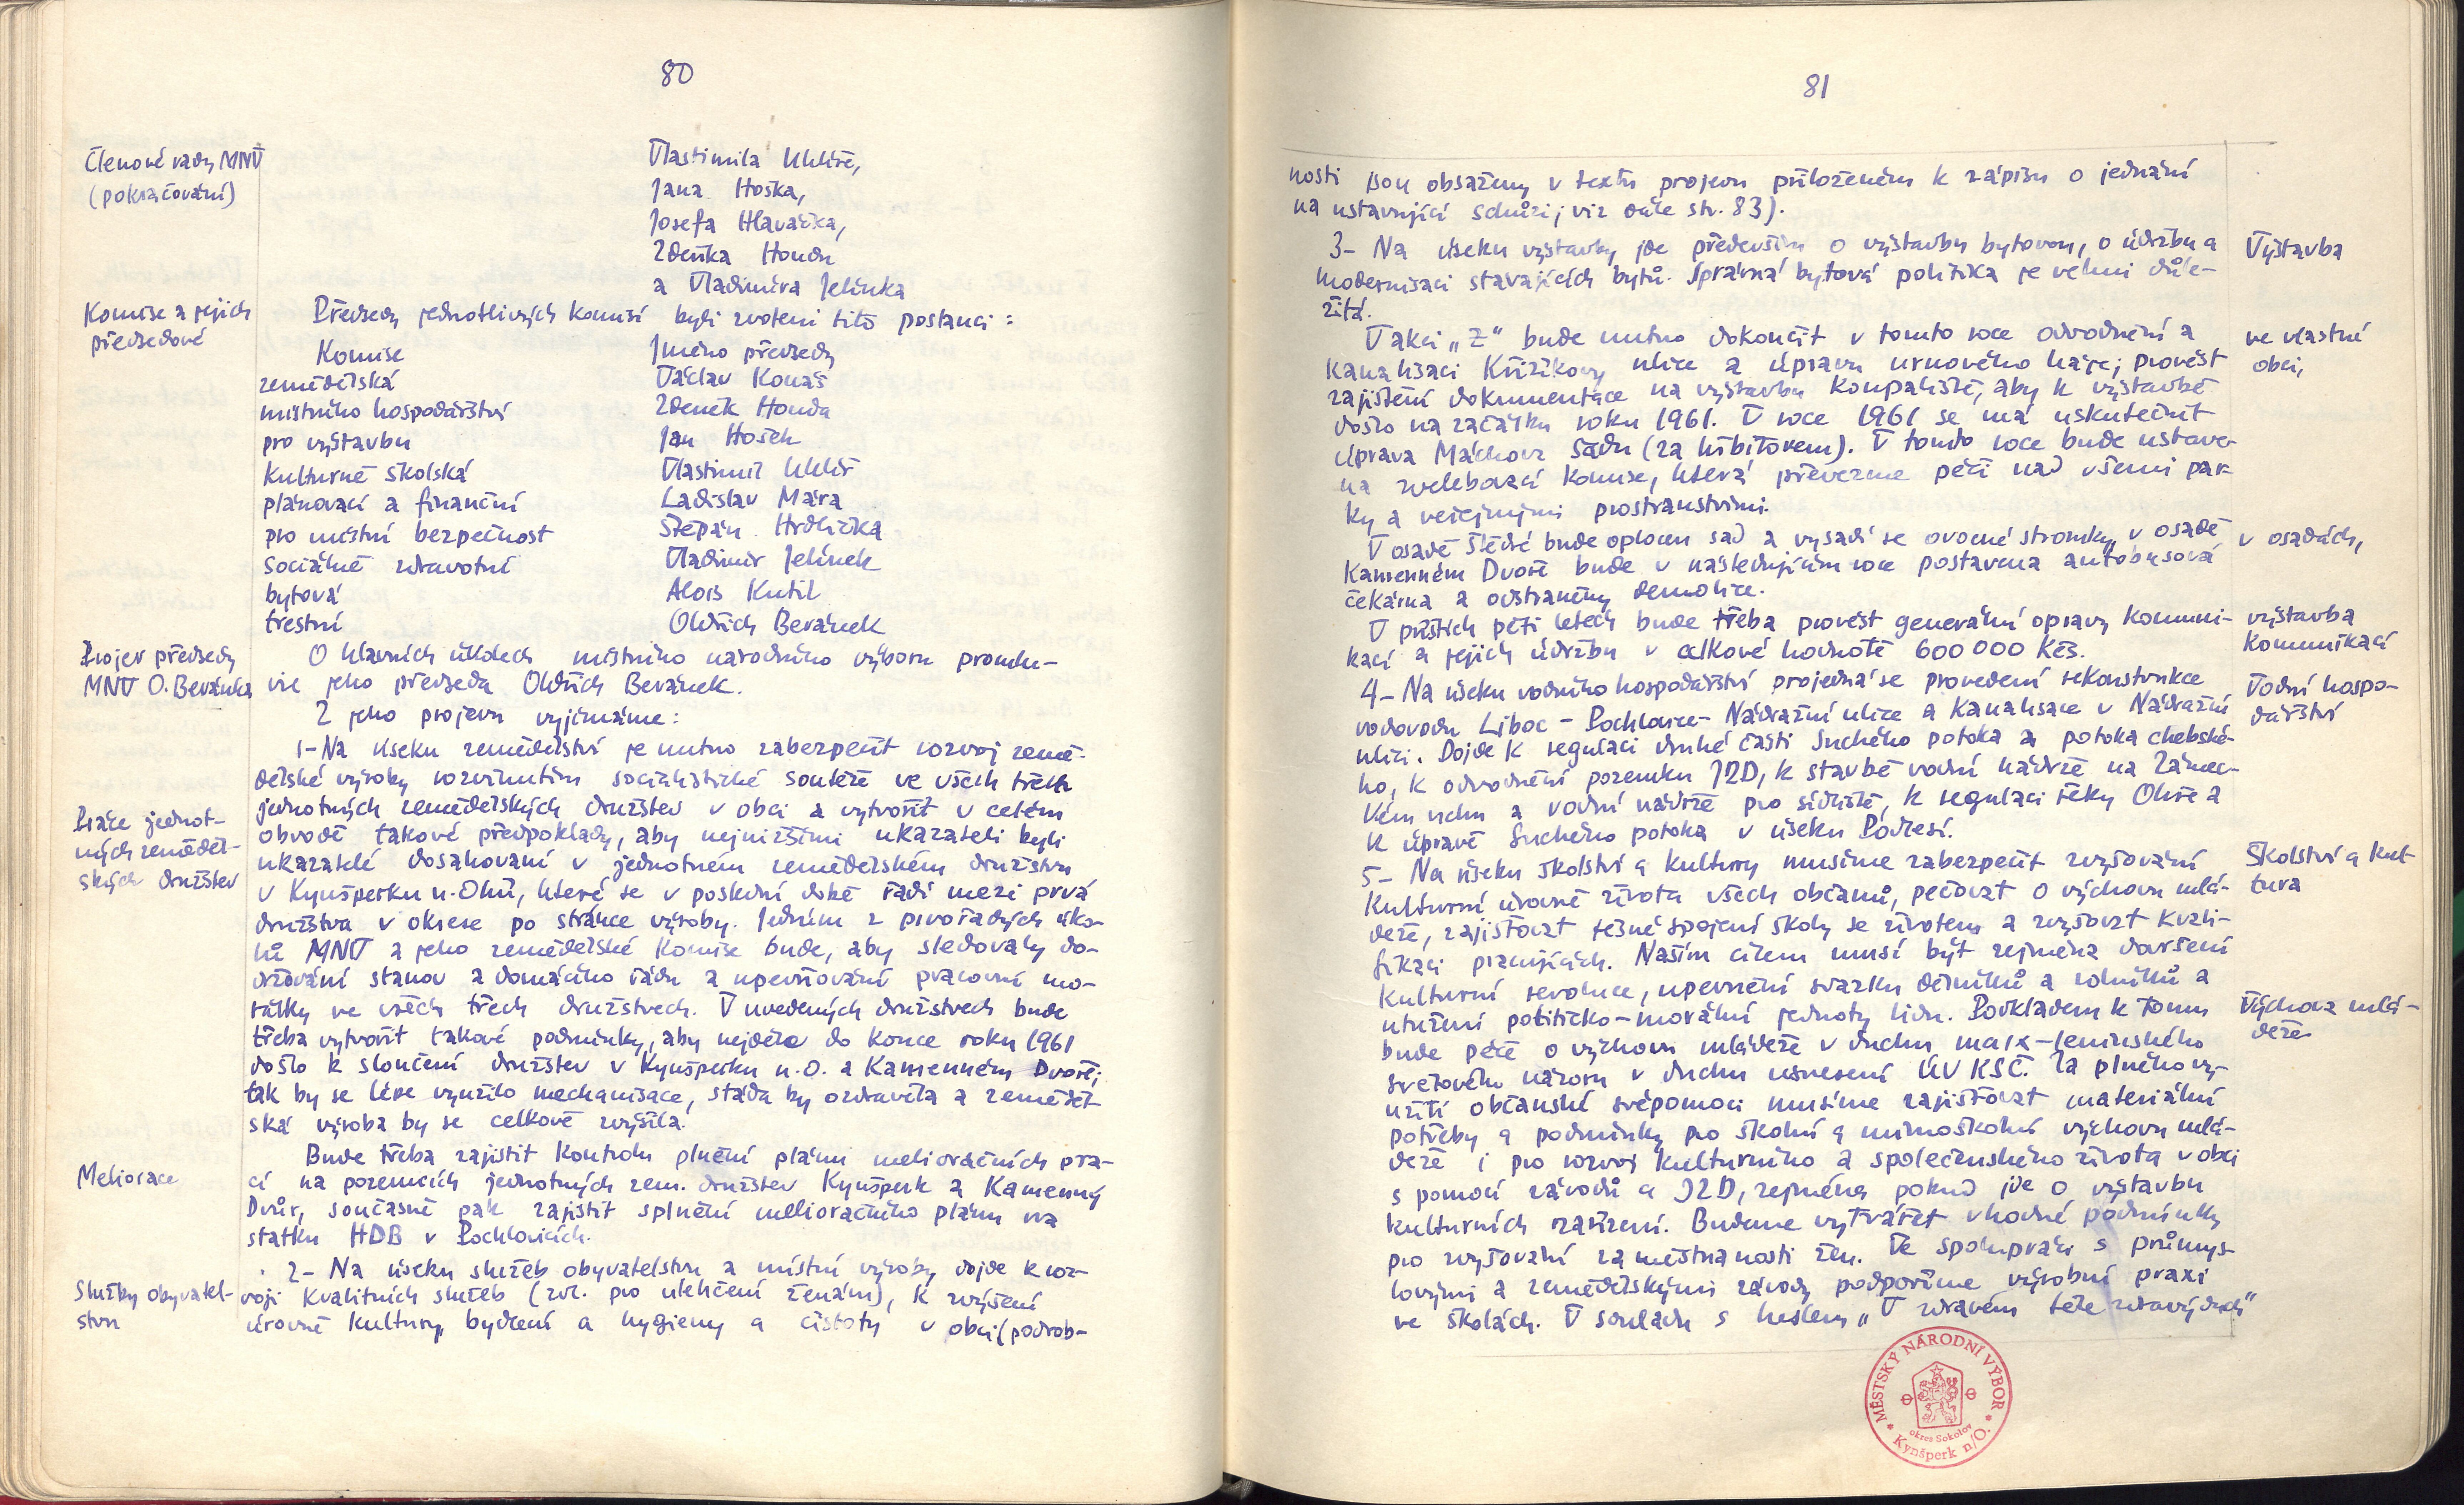 80
Členové rady MNV
(pokračování)
Vlastimila Uhlíře,
Jana Hoška,
Josefa Hlaváčka,
Zdeňka Hondu
a Vladimíra Jelínka
Komise a jejich
předsedové
Předsedy jednotlivých komisí byli zvoleni tito poslanci:
Komise Jméno předsedy
zemědělská Václav Konáš
místního hospodářství Zdeněk Honda
pro výstavbu Jan Hošek
kulturně školská Vlastimil Uhlíř
plánovací a finanční Ladislav Mára
pro místní bezpečnost Štěpán Hrdlička
sociálně zdravotní Vladimír Jelínek
bytová Alois Kutil
trestní Oldřich Beránek
Projev předsedy
MNV O. Beránka
O hlavních úkolech místního národního výboru promlu-
vil jeho předseda Oldřich Beránek.
Z jeho projevu vyjímáme:
1- Na úseku zemědělství je nutno zabezpečit rozvoj země-
dělské výroby rozvinutím socialistické soutěže ve všech třech
Práce jednot-
ných zeměděl-
ských družstev
jednotných zemědělských družstev v obci a vytvořit v celém
obvodě takové předpoklady, aby nejnižšími ukazateli byli
ukazatelé dosahovaní v jednotném zemědělském družstvu
v Kynšperku n. Ohří, které se v poslední době řadí mezi prvá
družstva v okrese po stránce výroby. Jedním z prvořadých úko-
lů MNV a jeho zemědělské komise bude, aby sledovaly do-
držování stanov a domácího řádu a upevňování pracovní mo-
rálky ve všech třech družstvech. V uvedených družstvech bude
třeba vytvořit takové podmínky, aby nejdéle do konce roku 1961
došlo k sloučení družstev v Kynšperku n. O. a Kamenném Dvoře;
tak by se lépe využilo mechanisace, stáda by ozdravěla a zeměděl-
ská výroba by se celkově zvýšila.
Meliorace
Bude třeba zajistit kontrolu plnění plánu melioračních pra-
cí na pozemcích jednotných zem. družstev Kynšperk a Kamenný
Dvůr, současně pak zajistit splnění melioračního plánu na
statku HDB v Pochlovicích.
Služby obyvatel-
stvu
2- Na úseku služeb obyvatelstvu a místní výroby dojde k roz-
voji kvalitních služeb (zvl. pro ulehčení ženám), k zvýšení
úrovně kultury bydlení a hygieny a čistoty v obci (podrob-
81
nosti jsou obsaženy v textu projevu přiloženém k zápisu o jednání
na ustavující schůzi; viz dále str. 83).
Výstavba
3- Na úseku výstavby jde především o výstavbu bytovou, o údržbu a
modernisaci stávajících bytů. Správná bytová politika je velmi důle-
žitá.
ve vlastní
obci,
V akci „Z" bude nutno dokončit v tomto roce odvodnění a
kanalisaci Křižíkovy ulice a úpravu urnového háje; provést
zajištění dokumentace na výstavbu koupaliště, aby k výstavbě
došlo na začátku roku 1961. V roce 1961 se má uskutečnit
úprava Máchova sadu (za hřbitovem). V tomto roce bude ustave-
na zvelebovací komise, která převezme péči nad všemi par-
ky a veřejnými prostranstvími.
v osadách,
V osadě Štědré bude oplocen sad a vysadí se ovocné stromky, v osadě
Kamenném Dvoře bude v následujícím roce postavena autobusová
čekárna a odstraněny demolice.
výstavba
komunikací
V příštích pěti letech bude třeba provést generální opravy komuni-
kací a jejich údržbu v celkové hodnotě 600 000 Kčs.
Vodní hospo-
dářství
4- Na úseku vodního hospodářství projedná se provedení rekonstrukce
vodovodu Liboc - Pochlovice - Nádražní ulice a kanalisace v Nádražní
ulici. Dojde k regulaci druhé části Suchého potoka a potoka chebské-
ho, k odvodnění pozemku JZD, k stavbě vodní nádrže na Zámec-
kém vrchu a vodní nádrže pro sídliště, k regulaci řeky Ohře a
k úpravě Suchého potoka v úseku Podlesí.
Školství a kul-
tura
5- Na úseku školství a kultury musíme zabezpečit zvyšování
kulturní úrovně života všech občanů, pečovat o výchovu mlá-
deže, zajišťovat těsné spojení školy se životem a zvyšovat kvali-
fikaci pracujících. Naším cílem musí být zejména dovršení
kulturní revoluce, upevnění svazku dělníků a rolníků a
utužení politicko-morální jednoty lidu. Podkladem k tomu
Výchova mlá-
deže
bude péče o výchovu mládeže v duchu marx-leninského
světového názoru v duchu usnesení ÚV KSČ. Za plného vy-
užití občanské svépomoci musíme zajišťovat materiální
potřeby a podmínky pro školní a mimoškolní výchovu mlá-
deže i pro rozvoj kulturního a společenského života v obci
s pomocí závodů a JZD, zejména pokud jde o výstavbu
kulturních zařízení. Budeme vytvářet vhodné podmínky
pro zvyšování zaměstnanosti žen. Ve spolupráci s průmys-
lovými a zemědělskými závody podpoříme výrobní praxi
ve školách. V souladu s heslem „V zdravém těle zdravý duch"
MĚSTSKÝ NÁRODNÍ VÝBOR
okres Sokolov
Kynšperk n/O.